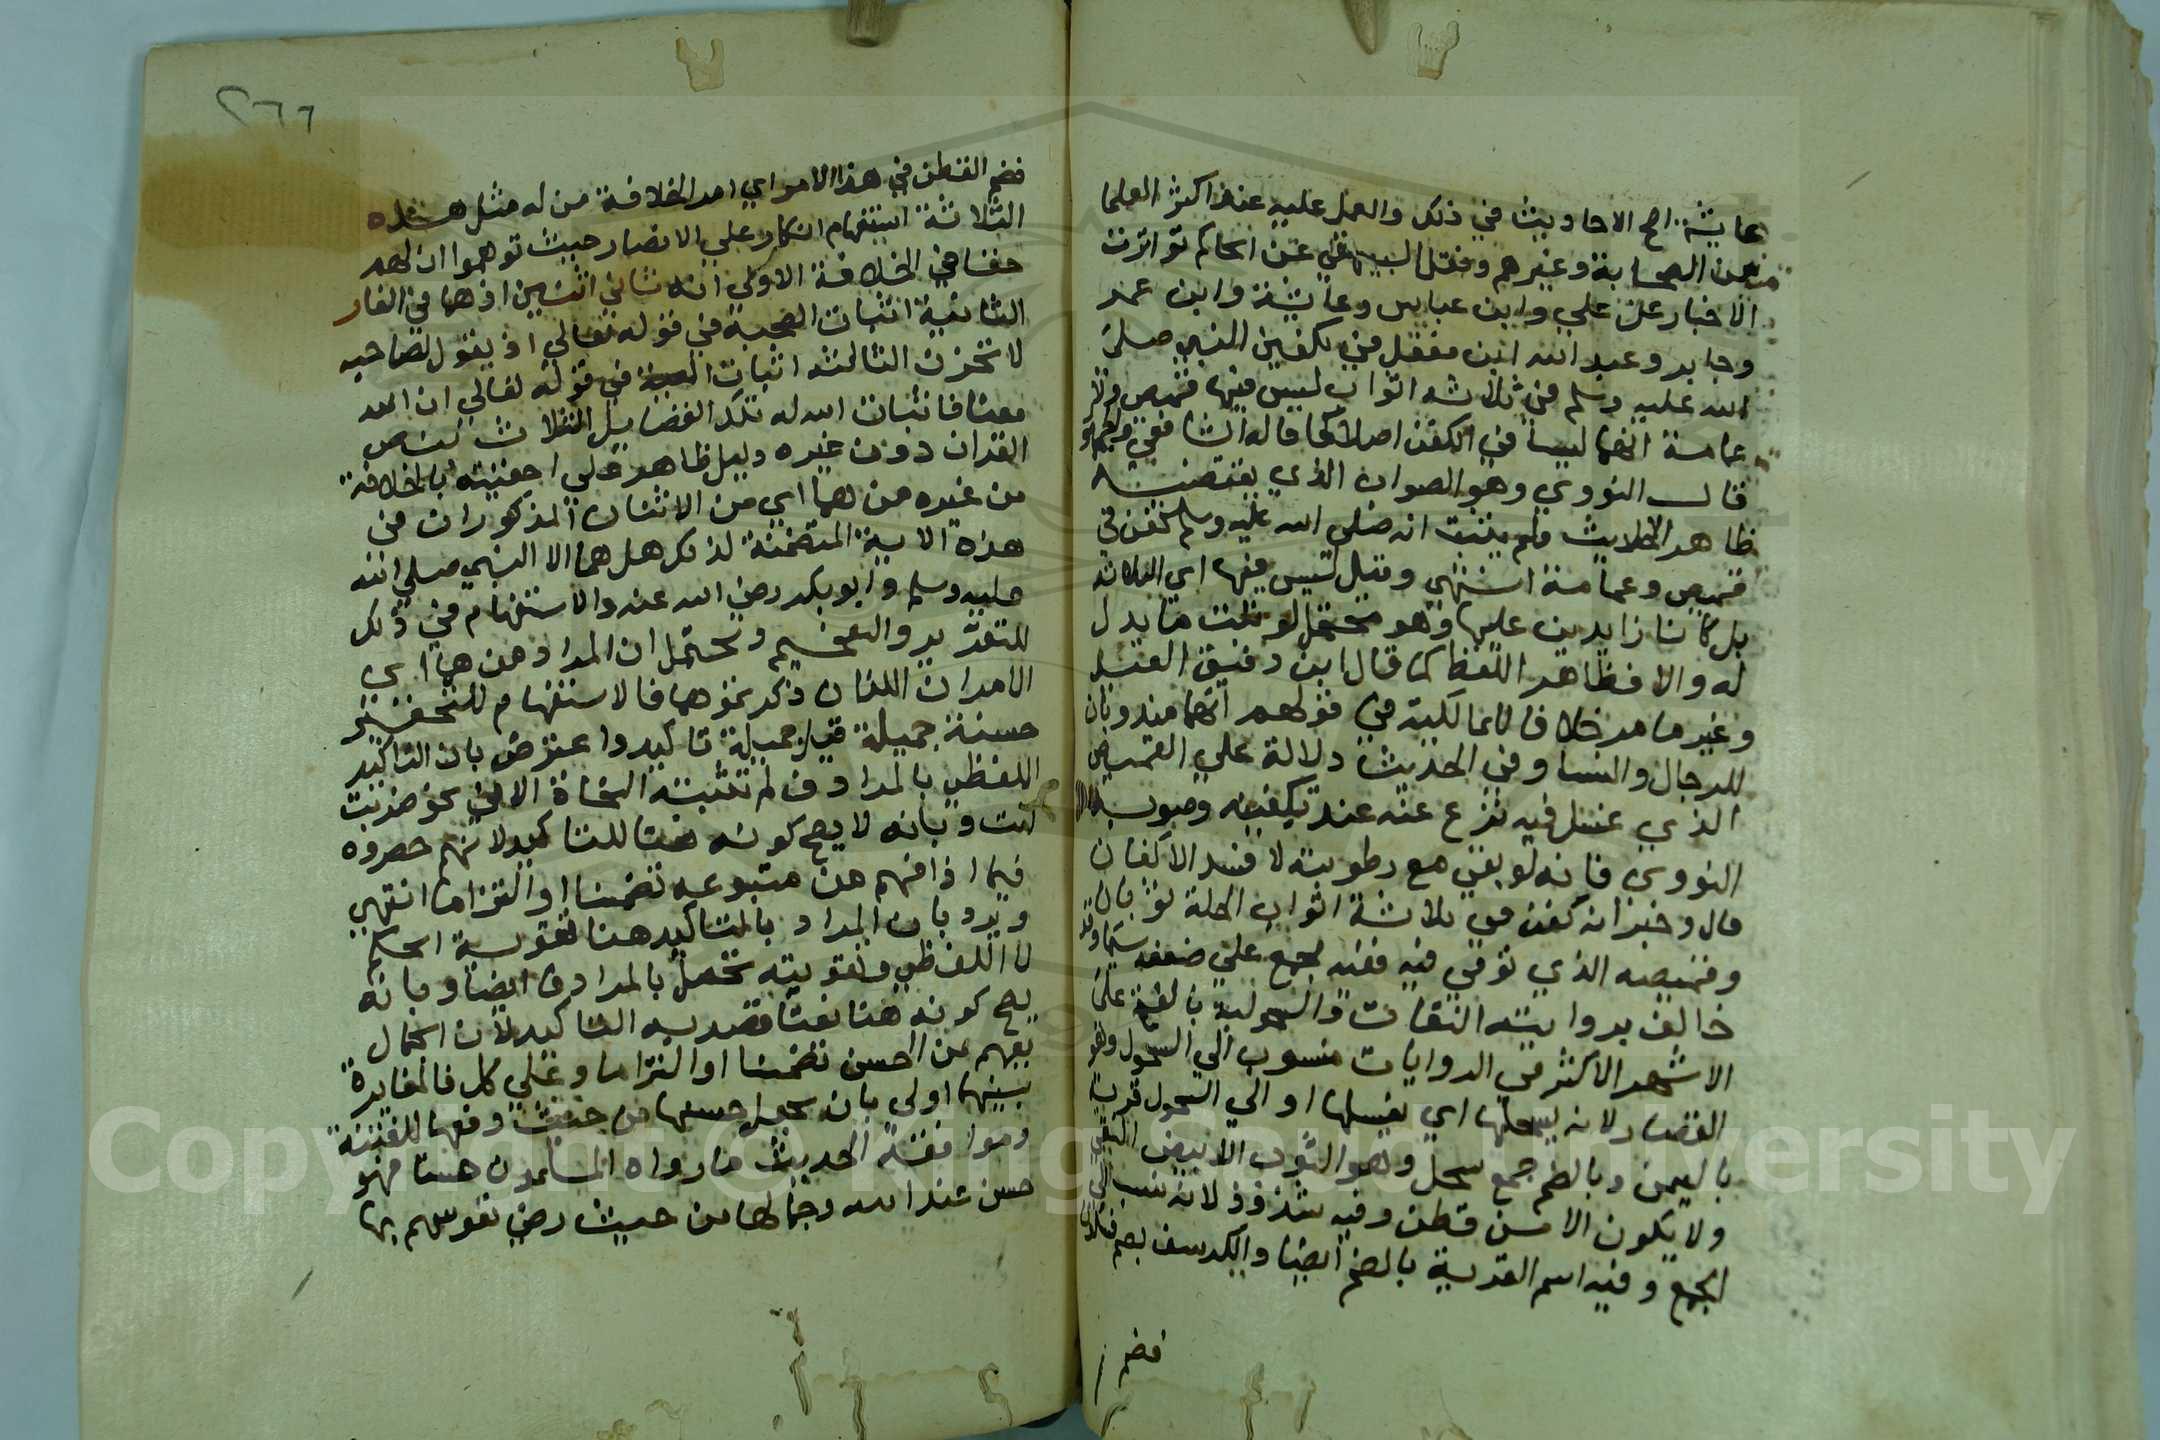 عايشة اصح الاحاديث في ذلك والعمل عليه عند اكثر العلما
من الصحابة وغيرهم ونقل البيهقي عن الحاكم تواترت
الاخبار عن علي وابن عباس وعايشة وابن عمر
وجابر وعبد الله ابن مغفل في تكفين النبي صلى
الله عليه وسلم في ثلاثة اثواب ليس فيها قميص ولا
عمامة انهما ليسا في الكفن اصلا كما قاله الشافعي
قال النووي وهو الصواب الذي يقتضيه
ظاهر الاحاديث ولم يثبت انه صلى الله عليه وسلم كفن في
قميص وعمامة انتهى وقيل ليس فيها اي الثلاثة
بل كانا زايدين عليها وهو محتمل لو ثبت ما يدل
له والا فظاهر اللفظ كما قال ابن دقيق العيد
وغيره ما مر خلافا للمالكية في قولهم انهما مندوبان
للرجال والنسا وفي الحديث دلالة على القميص
الذي غسل فيه نزع عنه عند تكفينه وصوبه
النووي فانه لو بقي مع رطوبته لافسد الاكفان
قال وخبر انه كفن في ثلاثة اثواب الحلة ثوبان
وقميصه الذي توفي فيه ففيه مجمع على ضعفه سيما وقد
خالف بروايته الثقات والسحولية بالفتح على
الاشهر الاكثر في الروايات منسوب الى السحول وهو
القصار لانه يسحلها اي يغسلها او الى السحول قرية
باليمن وبالضم جمع سحل وهو الثوب الابيض النقي
ولا يكون الا من قطن وفيه شذوذ لانه نسب الى
الجمع وفيه اسم القرية بالضم ايضا والكرسف بضم
فضم
٢٦٦
فضم القطن في هذا الامر اي امر الخلافة من له مثل هذه
الثلاثة استفهام انكار على الانصار حيث توهموا ان لهم
حقا في الخلافة الاولى انه ثاني اثنين اذ هما في الغار
الثانية اثبات الصحبة في قوله تعالى اذ يقول لصاحبه
لا تحزن الثالثة اثبات المعية في قوله تعالى ان الله
معنا فاثبات الله له تلك الفضايل الثلاث بنص
القران دون غيره دليل ظاهر على احقيته بالخلافة
من غيره من هما اي من الاثنان المذكوران في
هذه الاية المتضمنة لذكر هل هما الا النبي صلى الله
عليه وسلم وابو بكر رضي الله عنه والاستفهام في ذلك
للتقرير والتفخيم ويحتمل ان المراد من هما اي
الامران اللذان ذكر نحوهما فالاستفهام للتحقير
حسنة جميلة قيل جميلة تاكيد واعترض بان التاكيد
اللفظي بالمرادف لم تثبته النحاة الا في نحو ضربت
انت وبانه لا يصح كونه هنا للتاكيد لانهم حصروه
فيما اذا فهم من متبوعه تضمنا او التزاما انتهى
ويرد بان المراد بالتاكيد هنا تقوية الحكم
لا اللفظي وتقويته تحصل بالمرادف ايضا وبانه
يصح كونه هنا نعتا قصد به التاكيد لان الجمال
يفهم من الحسن تضمنا او التزاما وعلى كل فالمغايرة
بينهما اولى بان يجعل حسنها من حيث دفعها للفتنة
وموافقة الحديث ما رواه المسلمون حسنا فهو
حسن عند الله وجمالها من حيث رضي نفوسهم بها
Copyright © King Saud University